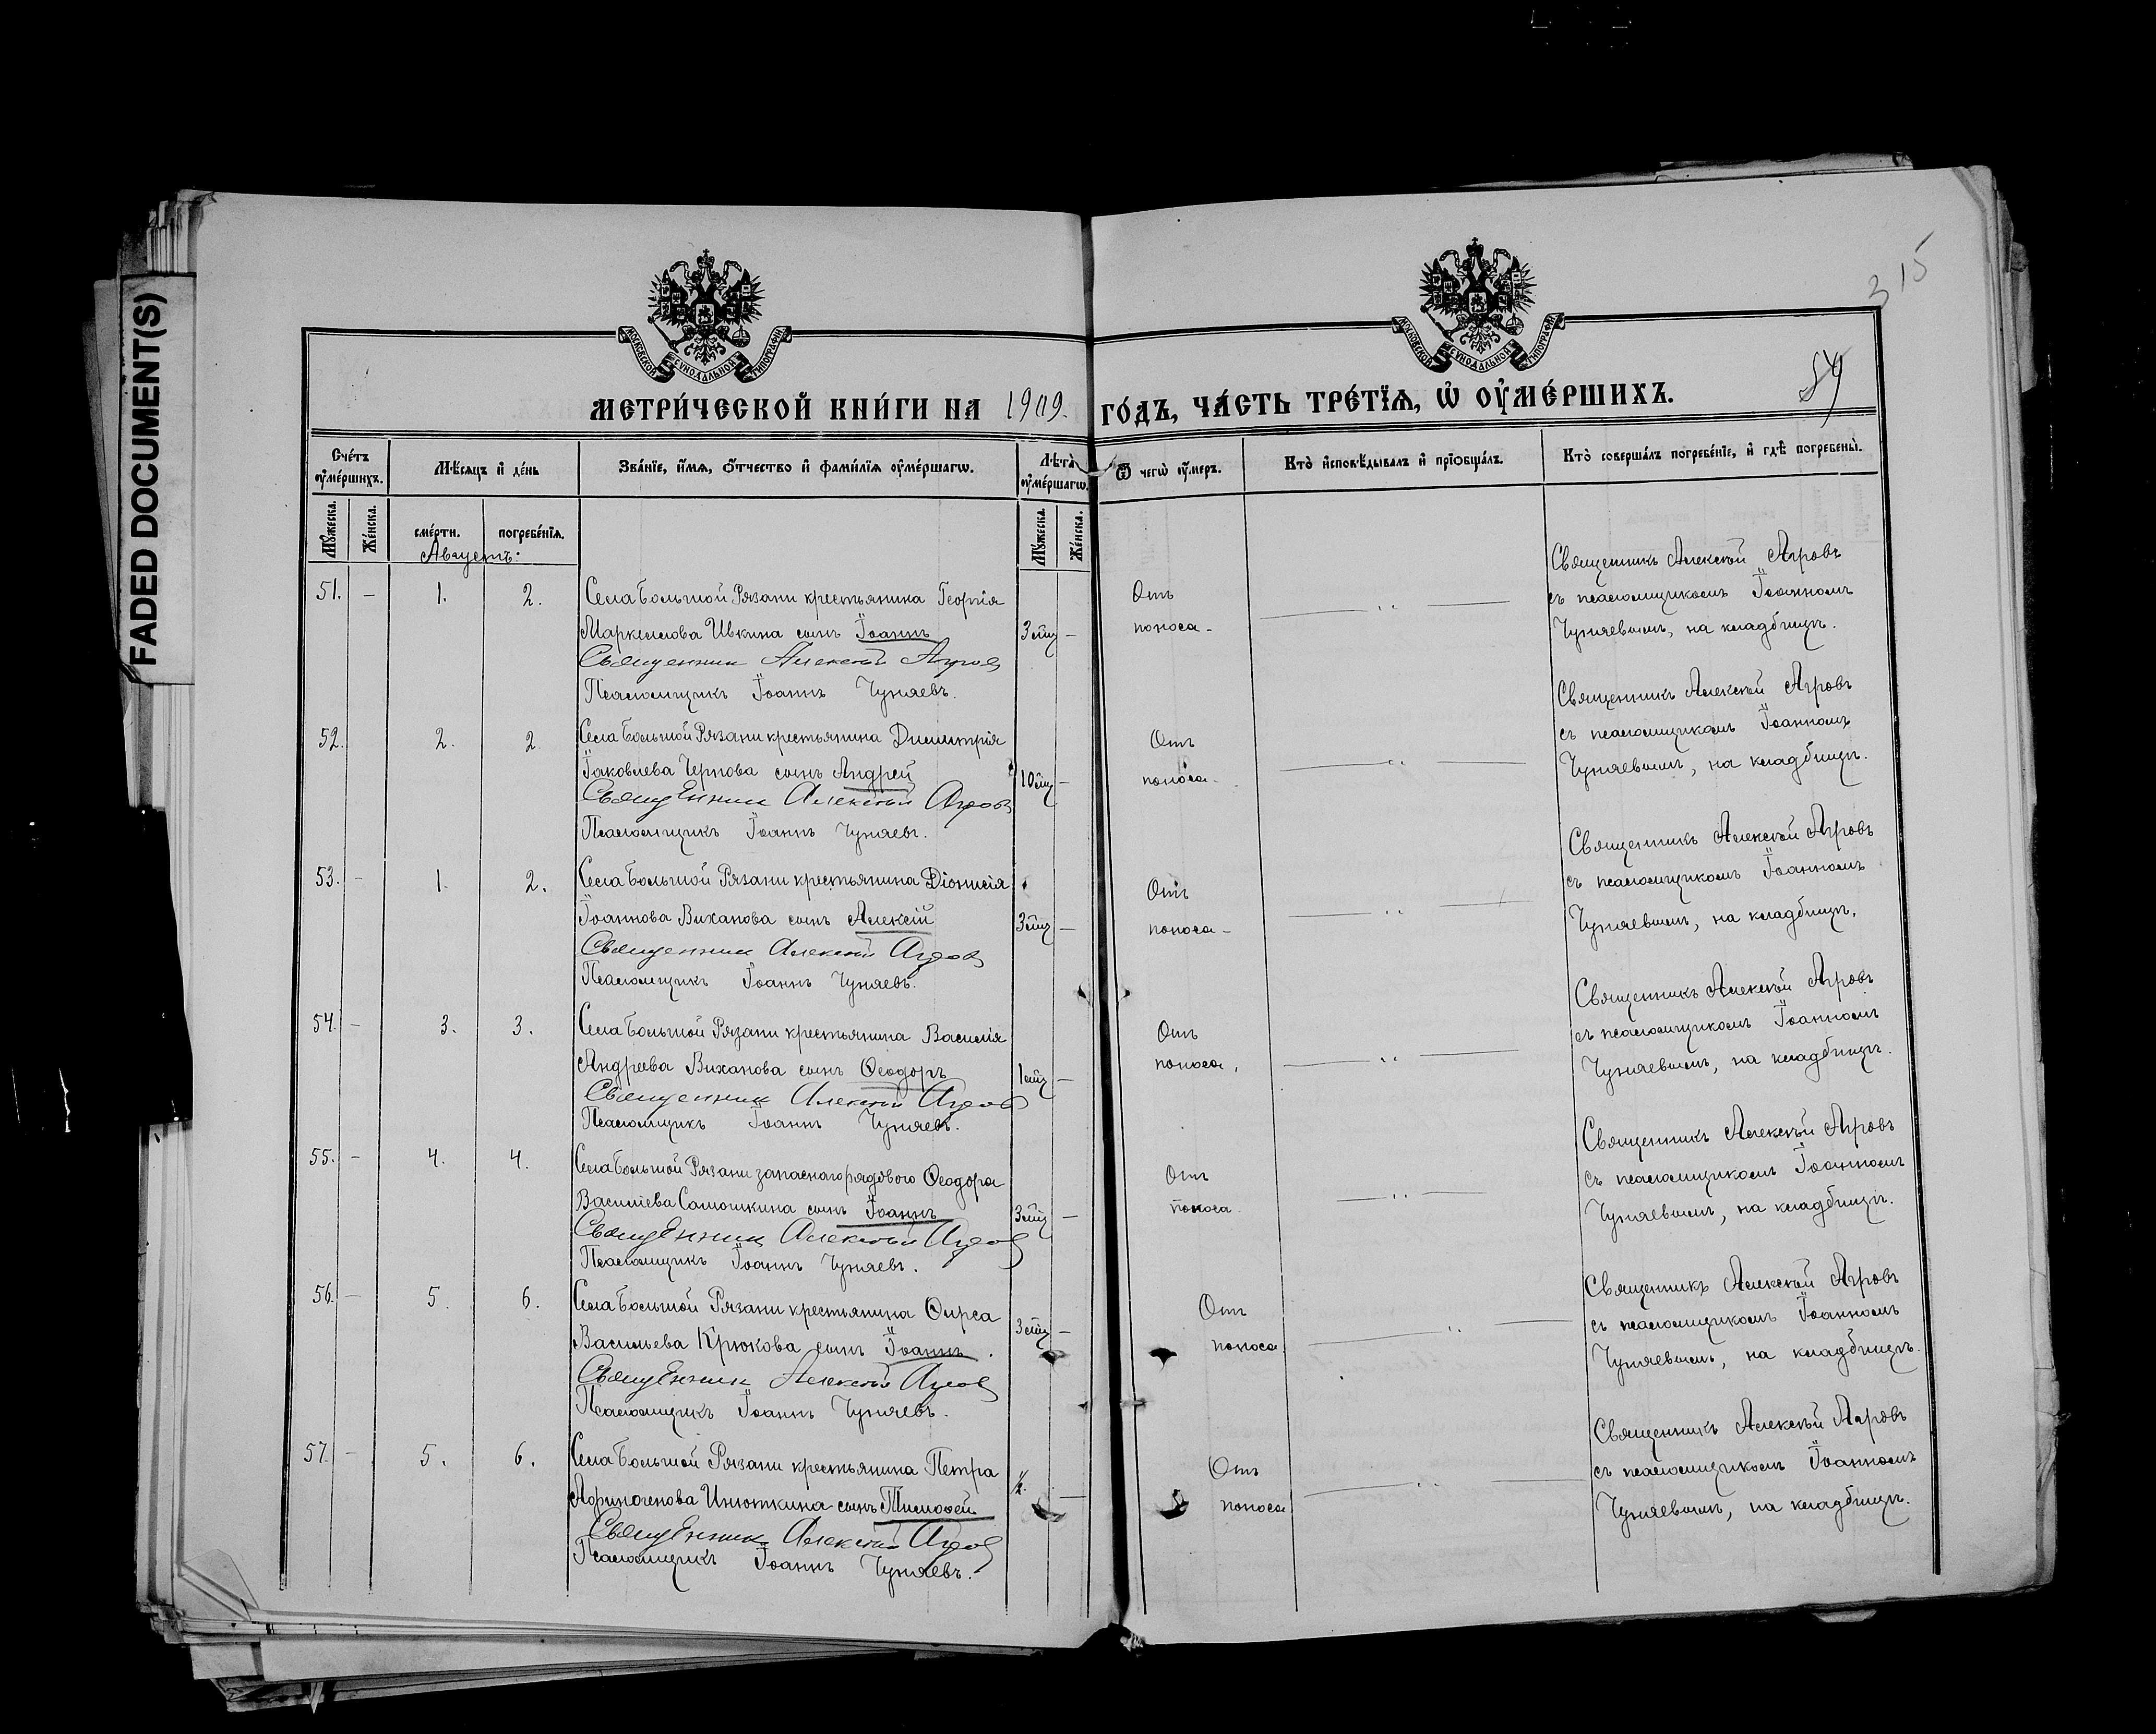 FADED DOCUMENT(S)
315
МОСКОВСКОЙ СѴНОДАЛЬНОЙ ТИПОГРАФІИ
МОСКОВСКОЙ СѴНОДАЛЬНОЙ ТИПОГРАФІИ
МЕТРИ́ЧЕСКОЙ КНИ́ГИ НА 1909. ГО́ДЪ, ЧА́СТЬ ТРЕ́ТІѦ, Ѡ҆ ОУ҆МЕ́РШИХЪ.
Сче́тъ оу҆ме́ршихъ.
Мѣ́сяцъ и҆ де́нь
Зва́нїе, и҆́мѧ, ѻ҆́тчество и҆ фами́лїѧ оу҆ме́ршагѡ.
Лѣ́та оу҆ме́ршагѡ.
Ѿ чегѡ̀ оу҆́меръ.
Кто̀ и҆сповѣ́дывалъ и҆ прїѡбща́лъ.
Кто̀ соверша́лъ погребе́нїе, и҆ гдѣ̀ погребены̀.
Мꙋ́жеска.
Же́нска.
сме́рти.
погребе́нїѧ.
Мꙋ́жеска.
Же́нска.
Августъ.
51. — 1. 2. Села Большой Рязани крестьянина Георгія
Маркеллова Ивкина сынъ Іоаннъ 3 мц —
Священникъ Алексѣй Агровъ
Псаломщикъ Іоаннъ Чуняевъ.
Отъ
поноса —
— " —
Священникъ Алексѣй Агровъ
съ псаломщикомъ Іоанномъ
Чуняевымъ, на кладбищѣ.
52. 2. 2 Села Большой Рязани крестьянина Димитрія
Іаковлева Чернова сынъ Андрей 10 мц —
Священникъ Алексѣй Агровъ
Псаломщикъ Іоаннъ Чуняевъ.
Отъ
поноса —
— " —
Священникъ Алексѣй Агровъ
съ псаломщикомъ Іоанномъ
Чуняевымъ, на кладбищѣ.
53. — 1. 2. Села Большой Рязани крестьянина Діонисія
Іоаннова Виханова сынъ Алексій 3 мц —
Священникъ Алексѣй Агровъ
Псаломщикъ Іоаннъ Чуняевъ.
Отъ
поноса —
— " —
Священникъ Алексѣй Агровъ
съ псаломщикомъ Іоанномъ
Чуняевымъ, на кладбищѣ.
54. — 3. 3. Села Большой Рязани крестьянина Василія
Андреева Виханова сынъ Ѳеодоръ 1 мц —
Священникъ Алексѣй Агровъ
Псаломщикъ Іоаннъ Чуняевъ.
Отъ
поноса,
— " —
Священникъ Алексѣй Агровъ
съ псаломщикомъ Іоанномъ
Чуняевымъ, на кладбищѣ.
55. — 4. 4. Села Большой Рязани запаснаго рядового Ѳеодора
Василіева Самошкина сынъ Іоаннъ 3 мц —
Священникъ Алексѣй Агровъ
Псаломщикъ Іоаннъ Чуняевъ.
Отъ
поноса
— " —
Священникъ Алексѣй Агровъ
съ псаломщикомъ Іоанномъ
Чуняевымъ, на кладбищѣ.
56. — 5. 6. Села Большой Рязани крестьянина Ѳирса
Васильева Крюкова сынъ Іоаннъ. 3 мц —
Священникъ Алексѣй Агровъ
Псаломщикъ Іоаннъ Чуняевъ.
Отъ
поноса
— " —
Священникъ Алексѣй Агровъ
съ псаломщикомъ Іоанномъ
Чуняевымъ, на кладбищѣ.
57. — 5. 6. Села Большой Рязани крестьянина Петра
Инюткина сынъ Тимоѳей ½. —
Священникъ Алексѣй Агровъ
Псаломщикъ Іоаннъ Чуняевъ.
Отъ
поноса
— " —
Священникъ Алексѣй Агровъ
съ псаломщикомъ Іоанномъ
Чуняевымъ, на кладбищѣ.